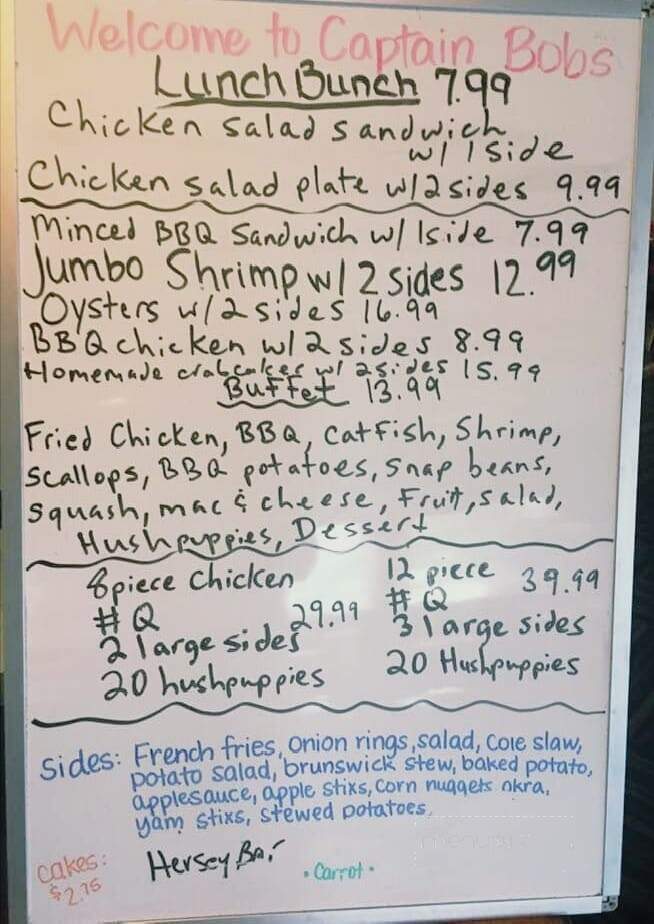 Welcome to Captain Bobs
Lunch Bunch 7.99
Chicken salad sandwich
w/ 1 side
Chicken salad plate w/2 sides 9.99
Minced BBQ Sandwich w/ 1side 7.99
Jumbo Shrimp w/ 2 sides 12.99
Oysters w/2 sides 16.99
BBQ chicken w/ 2 sides 8.99
Homemade crabcakes w/ 2 sides 15.99
Buffet 13.99
Fried Chicken, BBQ, Catfish, Shrimp,
Scallops, BBQ potatoes, Snap beans,
Squash, mac & cheese, Fruit, salad,
Hushpuppies, Dessert
8 piece Chicken
# Q 29.99
2 large sides
20 hushpuppies
12 piece 39.99
# Q
3 large sides
20 Hushpuppies
Sides: French fries, Onion rings, salad, Cole slaw,
potato salad, brunswick stew, baked potato,
applesauce, apple stixs, corn nuggets okra,
yam stixs, stewed potatoes,
Cakes: Hersey Bar
$2.75 • Carrot •